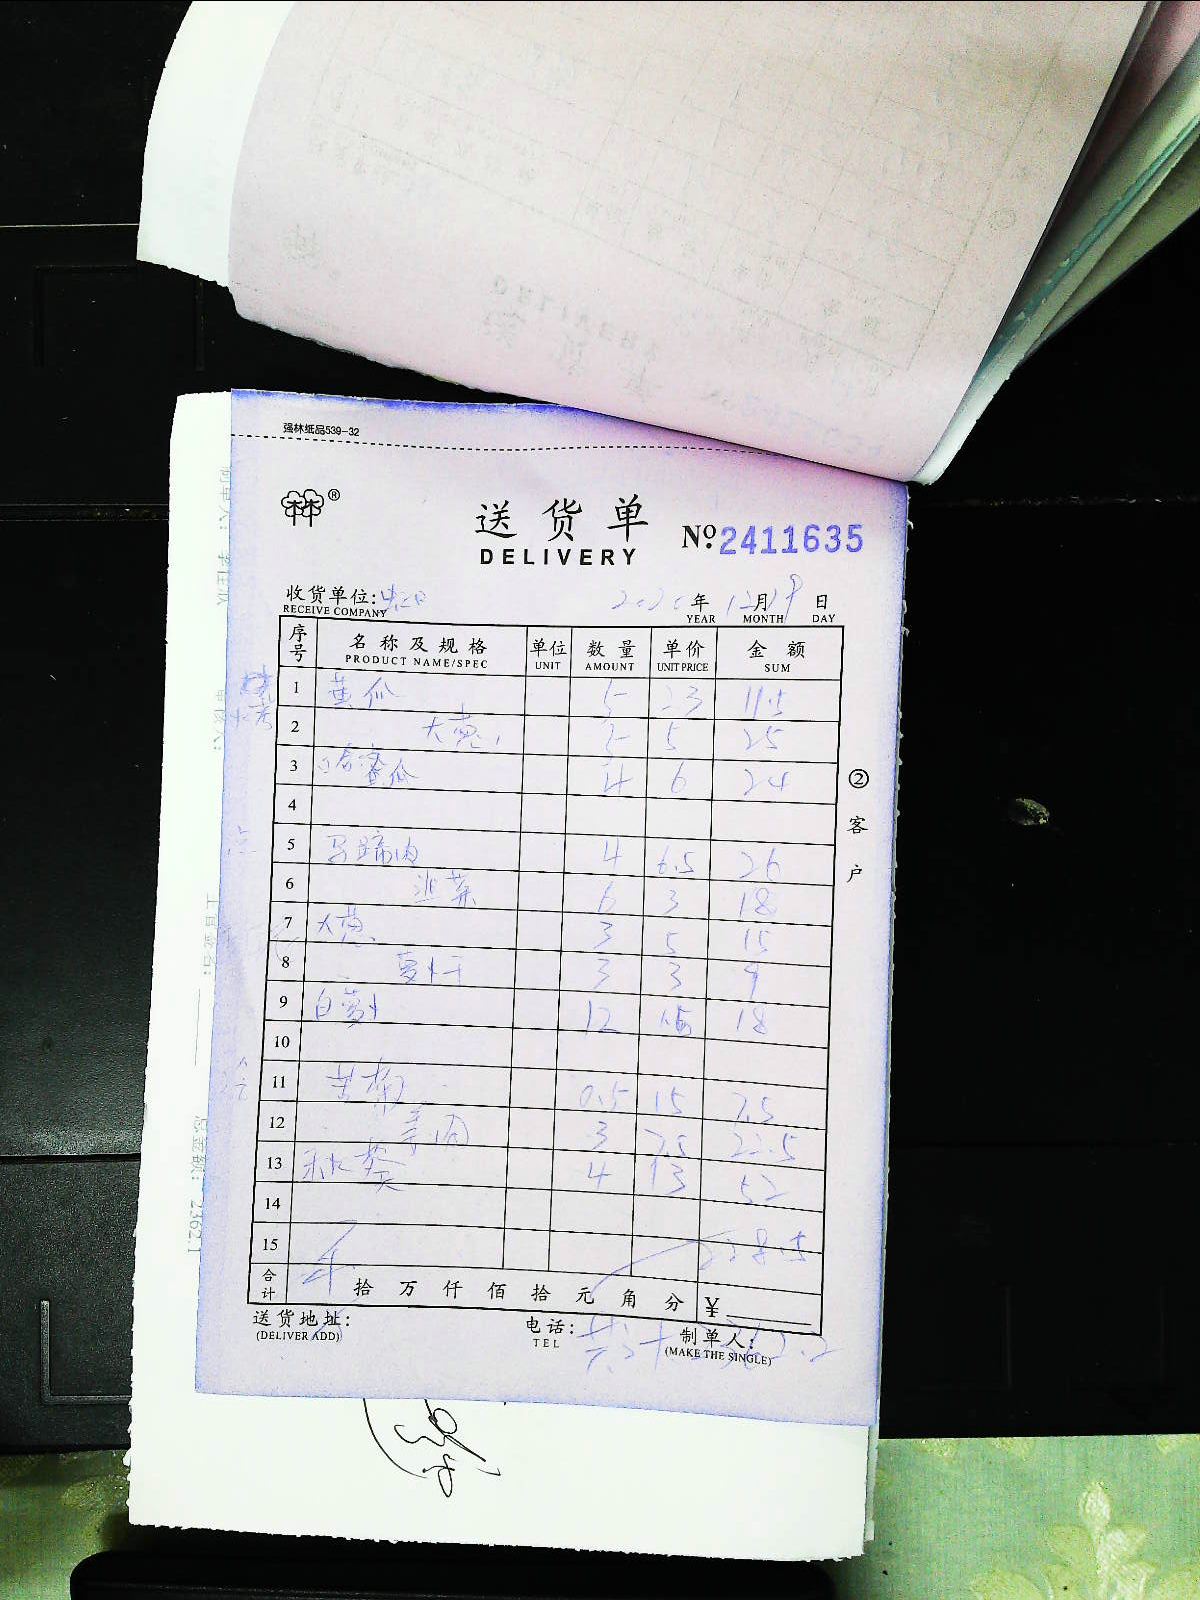 强林纸品539-32
®
送货单 №2411635
DELIVERY
收货单位: 年 12月19日
RECEIVE COMPANY YEAR MONTH DAY
序号 名称及规格 单位 数量 单价 金额
PRODUCT NAME/SPEC UNIT AMOUNT UNIT PRICE SUM
1 黄瓜 5 2.3 11.5
2 大葱 5 5 25
3 哈密瓜 4 6 24
4
5 马蹄肉 4 6.5 26
6 韭菜 6 3 18
7 大葱 3 5 15
8 萝卜干 3 3 9
9 白萝卜 12 1.5 18
10
11 0.5 15 7.5
12 3 7.5 22.5
13 秋葵 4 13 52
14
15
合计 拾 万 仟 佰 拾 元 角 分 ¥
② 客户
送货地址: 电话: 制单人:
(DELIVER ADD) TEL (MAKE THE SINGLE)
总金额: 2362.1